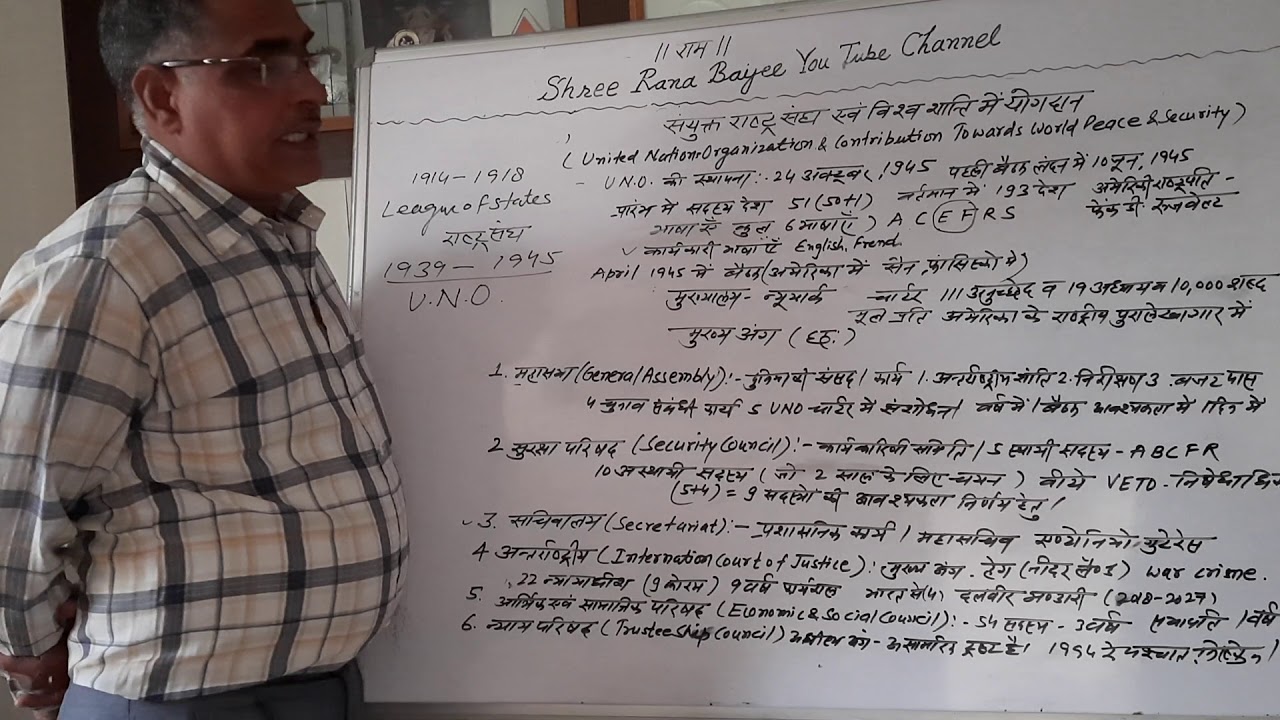 || राम ||
Shree Rana Baijee You Tube Channel
संयुक्त राष्ट्र संघ एवं विश्व शांति में योगदान
(United Nation Organization & Contribution Towards World Peace & Security)
1914-1918
League of states
राष्ट्र संघ
1939-1945
U.N.O.
- U.N.O. की स्थापना:- 24 अक्टूबर, 1945 पहली बैठक लंदन में 10 जून, 1945
प्रारंभ में सदस्य देश 51 (50+1) वर्तमान में 193 देश अमेरिकी राष्ट्रपति -
भाषाएँ कुल 6 भाषाएँ) A C E F R S रुजवेल्ट
✓ कार्यकारी भाषाएँ English, Frend
April 1945 में बैठक (अमेरिका में सैन फ्रांसिस्को में)
मुख्यालय - न्यूयार्क चार्टर 111 अनुच्छेद व 19 अध्याय व 10,000 शब्द
मूल प्रति अमेरिका के राष्ट्रीय पुरालेखागार में
मुख्य अंग (छः)
1. महासभा (General Assembly):- दुनिया की संसद / कार्य 1. अन्तर्राष्ट्रीय शांति 2. निरीक्षण 3. बजट पास
4 चुनाव संबंधी कार्य 5 UNO चार्टर में संशोधन / वर्ष में 1 बैठक आवश्यकता में 1 दिन में
2 सुरक्षा परिषद (Security Council):- कार्यकारिणी समिति / 5 स्थायी सदस्य - ABCFR
10 अस्थायी सदस्य (जो 2 साल के लिए चयन) VETO -
(5+4) = 9 सदस्यों की आवश्यकता निर्णय हेतु /
3. सचिवालय (Secretariat):- प्रशासनिक कार्य / महासचिव गुटेरेस
4 अन्तर्राष्ट्रीय (Internation Court of Justice): मुख्य हेग (नीदरलैण्ड) War crime.
22 न्यायाधीश (9 कोरम) 9 वर्ष भारत से (4) दलवीर भण्डारी (2018-2027)
5. आर्थिक एवं सामाजिक परिषद (Economic & Social Council):- 54 सदस्य - 3 वर्ष सभापति 1 वर्ष
6. न्याय परिषद (Trustee Ship Council) 1994 के पश्चात